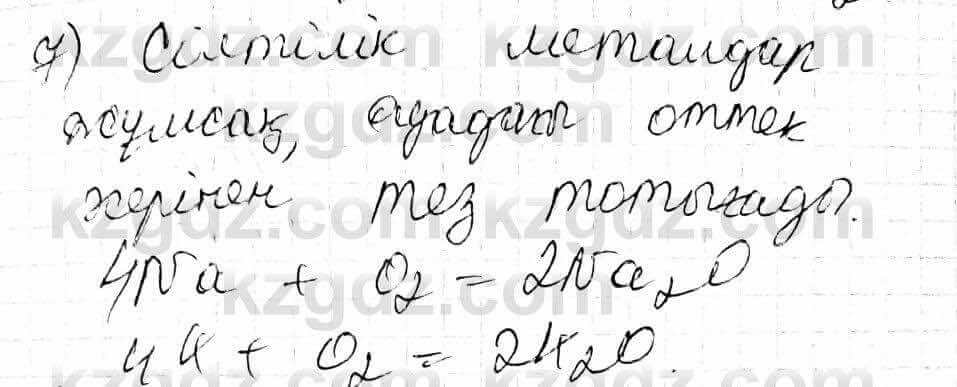 7) Сілтілік металдар
жұмсақ, ауадағы оттек
әсерінен тез тотығады.
4Na + O₂ = 2Na₂O
4K + O₂ = 2K₂O.
kzgdz.com